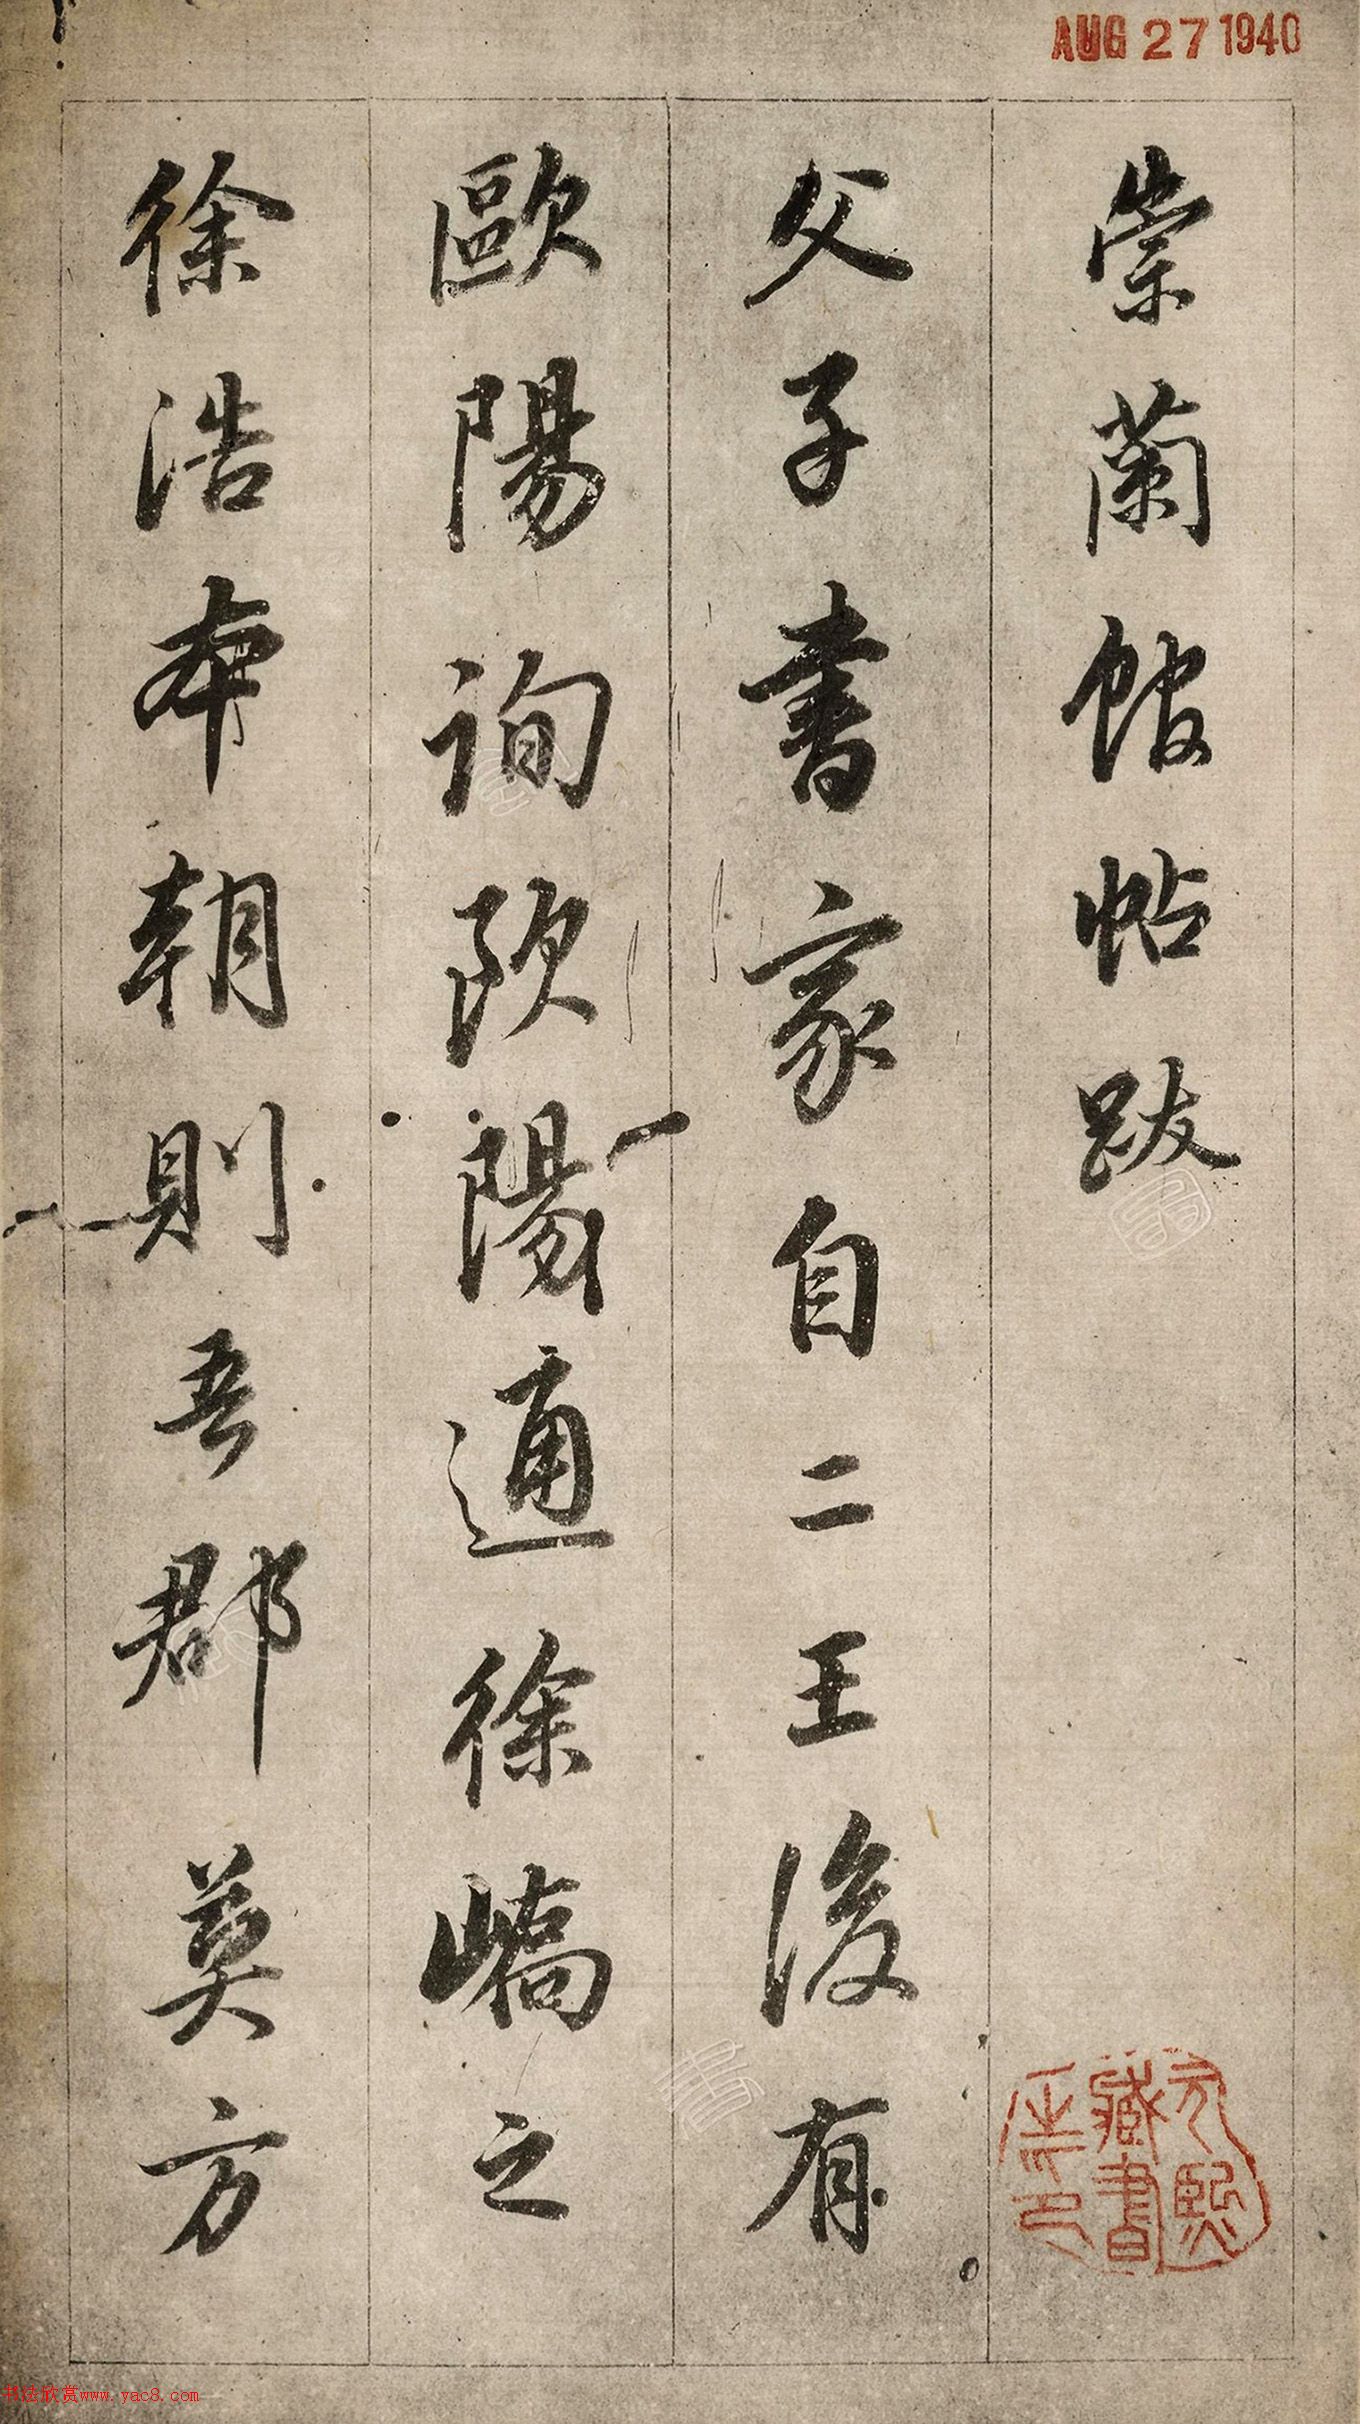 AUG 27 1940
崇蘭館帖跋
父子書家自二王後有
歐陽詢歐陽通徐嶠之
徐浩本朝則吾郡莫方
元熙
藏書
印
书法欣赏www.yac8.com